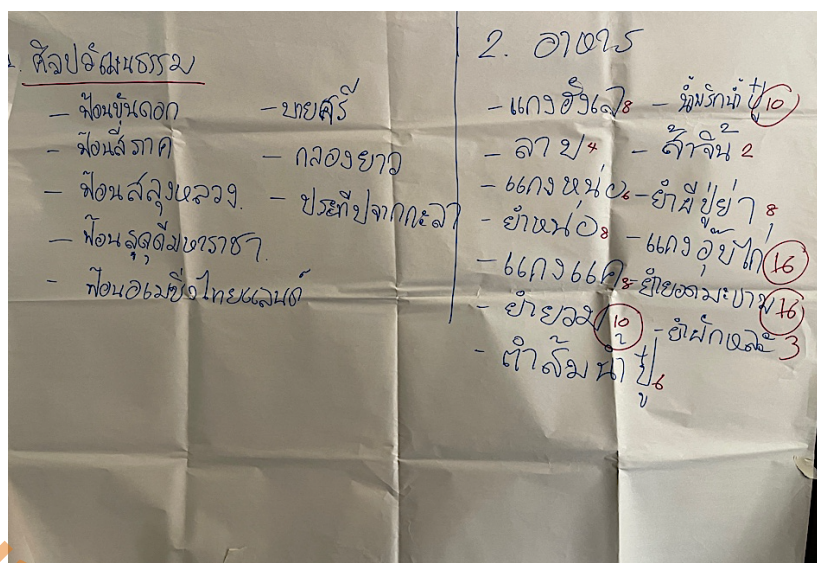 ศิลปวัฒนธรรม
- ฟ้อนขันดอก
- ฟ้อนสี่ราศี
- ฟ้อนสลุงหลวง
- ฟ้อนสดุดีมหาราชา
- ฟ้อนอเมซิ่งไทยแลนด์
- บายศรี
- กลองยาว
- ประทีปจากกะลา
2. อาหาร
- แกงฮังเล 8
- ลาบ 4
- แกงหน่อ 6
- ยำหน่อ 8
- แกงแค 8
- ยำยวม 10
- ตำส้มน้ำปู๋ 6
- น้ำพริกน้ำปู๋ 10
- ส้าจิ้น 2
- ยำผีปู่ย่า 8
- แกงอุ๊บไก่ 16
- ยำยอดมะขาม 16
- ยำผักเหละ 3